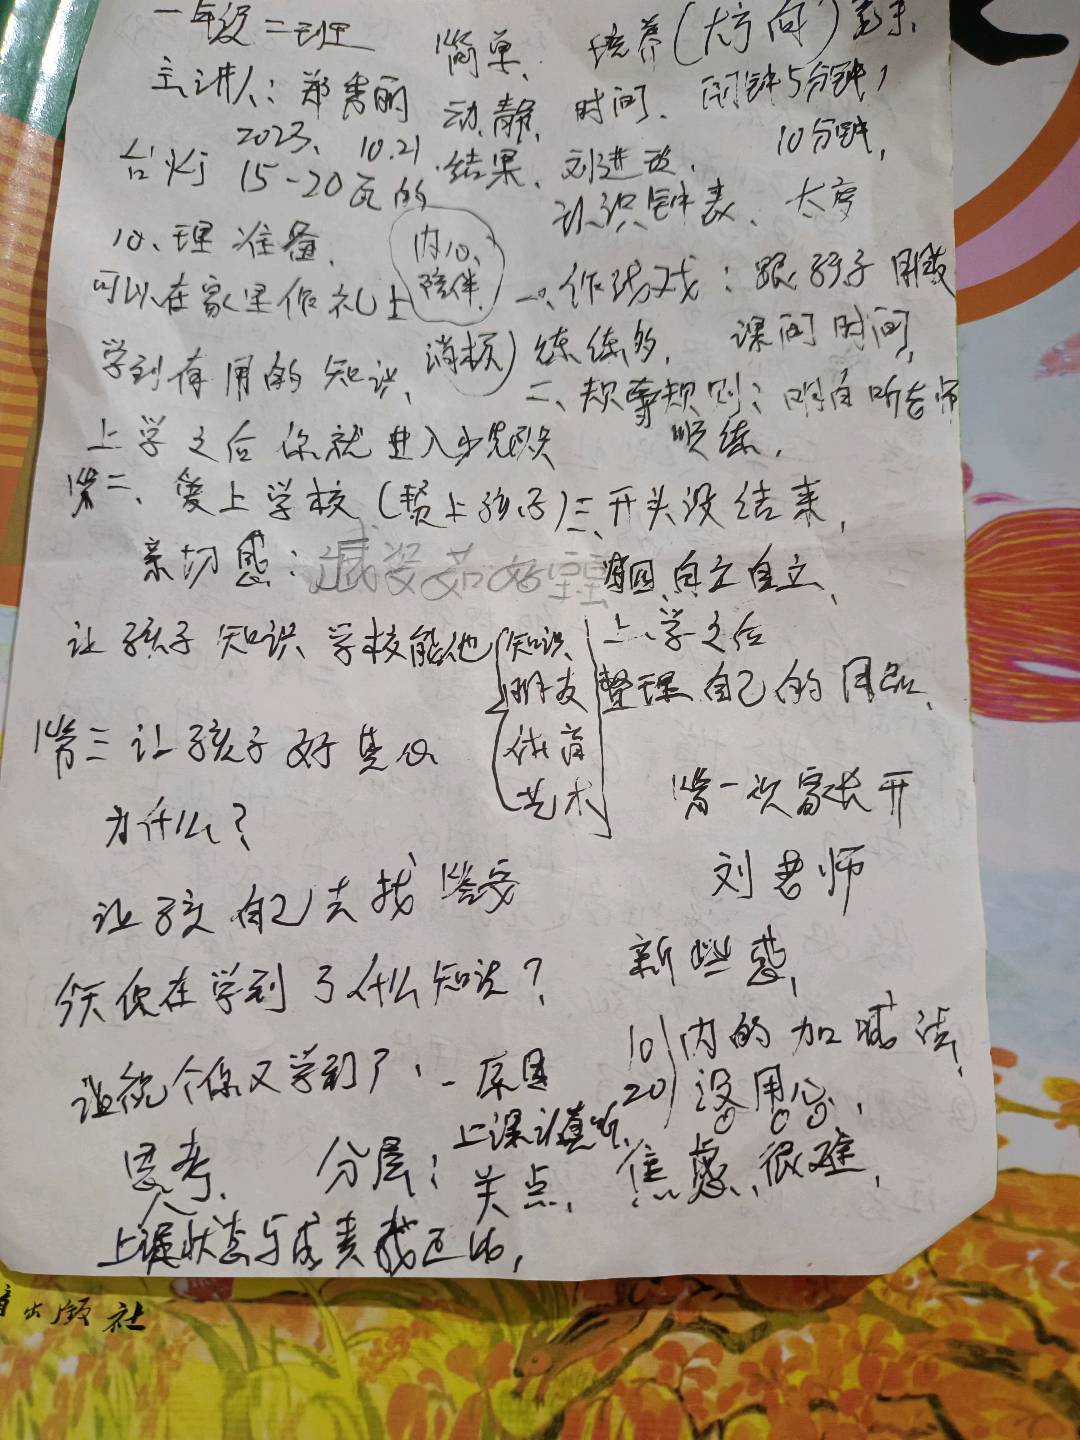 一年级二班
简单、培养(大方向)
主讲人:郑秀丽 动、静、时间、闹钟5分钟,
2023、10.21 结果、刘进步、10分钟,
台灯 15-20瓦的 认识钟表、太
心理准备、内心、陪伴、
可以在家里做 一、作 戏:跟孩子
学到有用的知识、消极)练练的, 课间时间,
二、规 规则:明白听老师
上学之后你就进入少先队 训练,
第二、爱上学校( 上孩子)三、开头没结果,
亲切感:诚 茹好 四、自立自立、
让孩子知识、学校能他 知识、 上学之后
朋友 整理自己的用品、
体育
艺术
第三让孩子好奇心
第一次家长开
为什么?
刘老师
让孩 自己去找答案
新些感,
今天你在学到了什么知识?
10 20 内的加减法、
没用心,
让 个你又学到了、一原因
思考、分层:上课认真听、
关点, 焦虑、很难,
上课状态与成
出版社